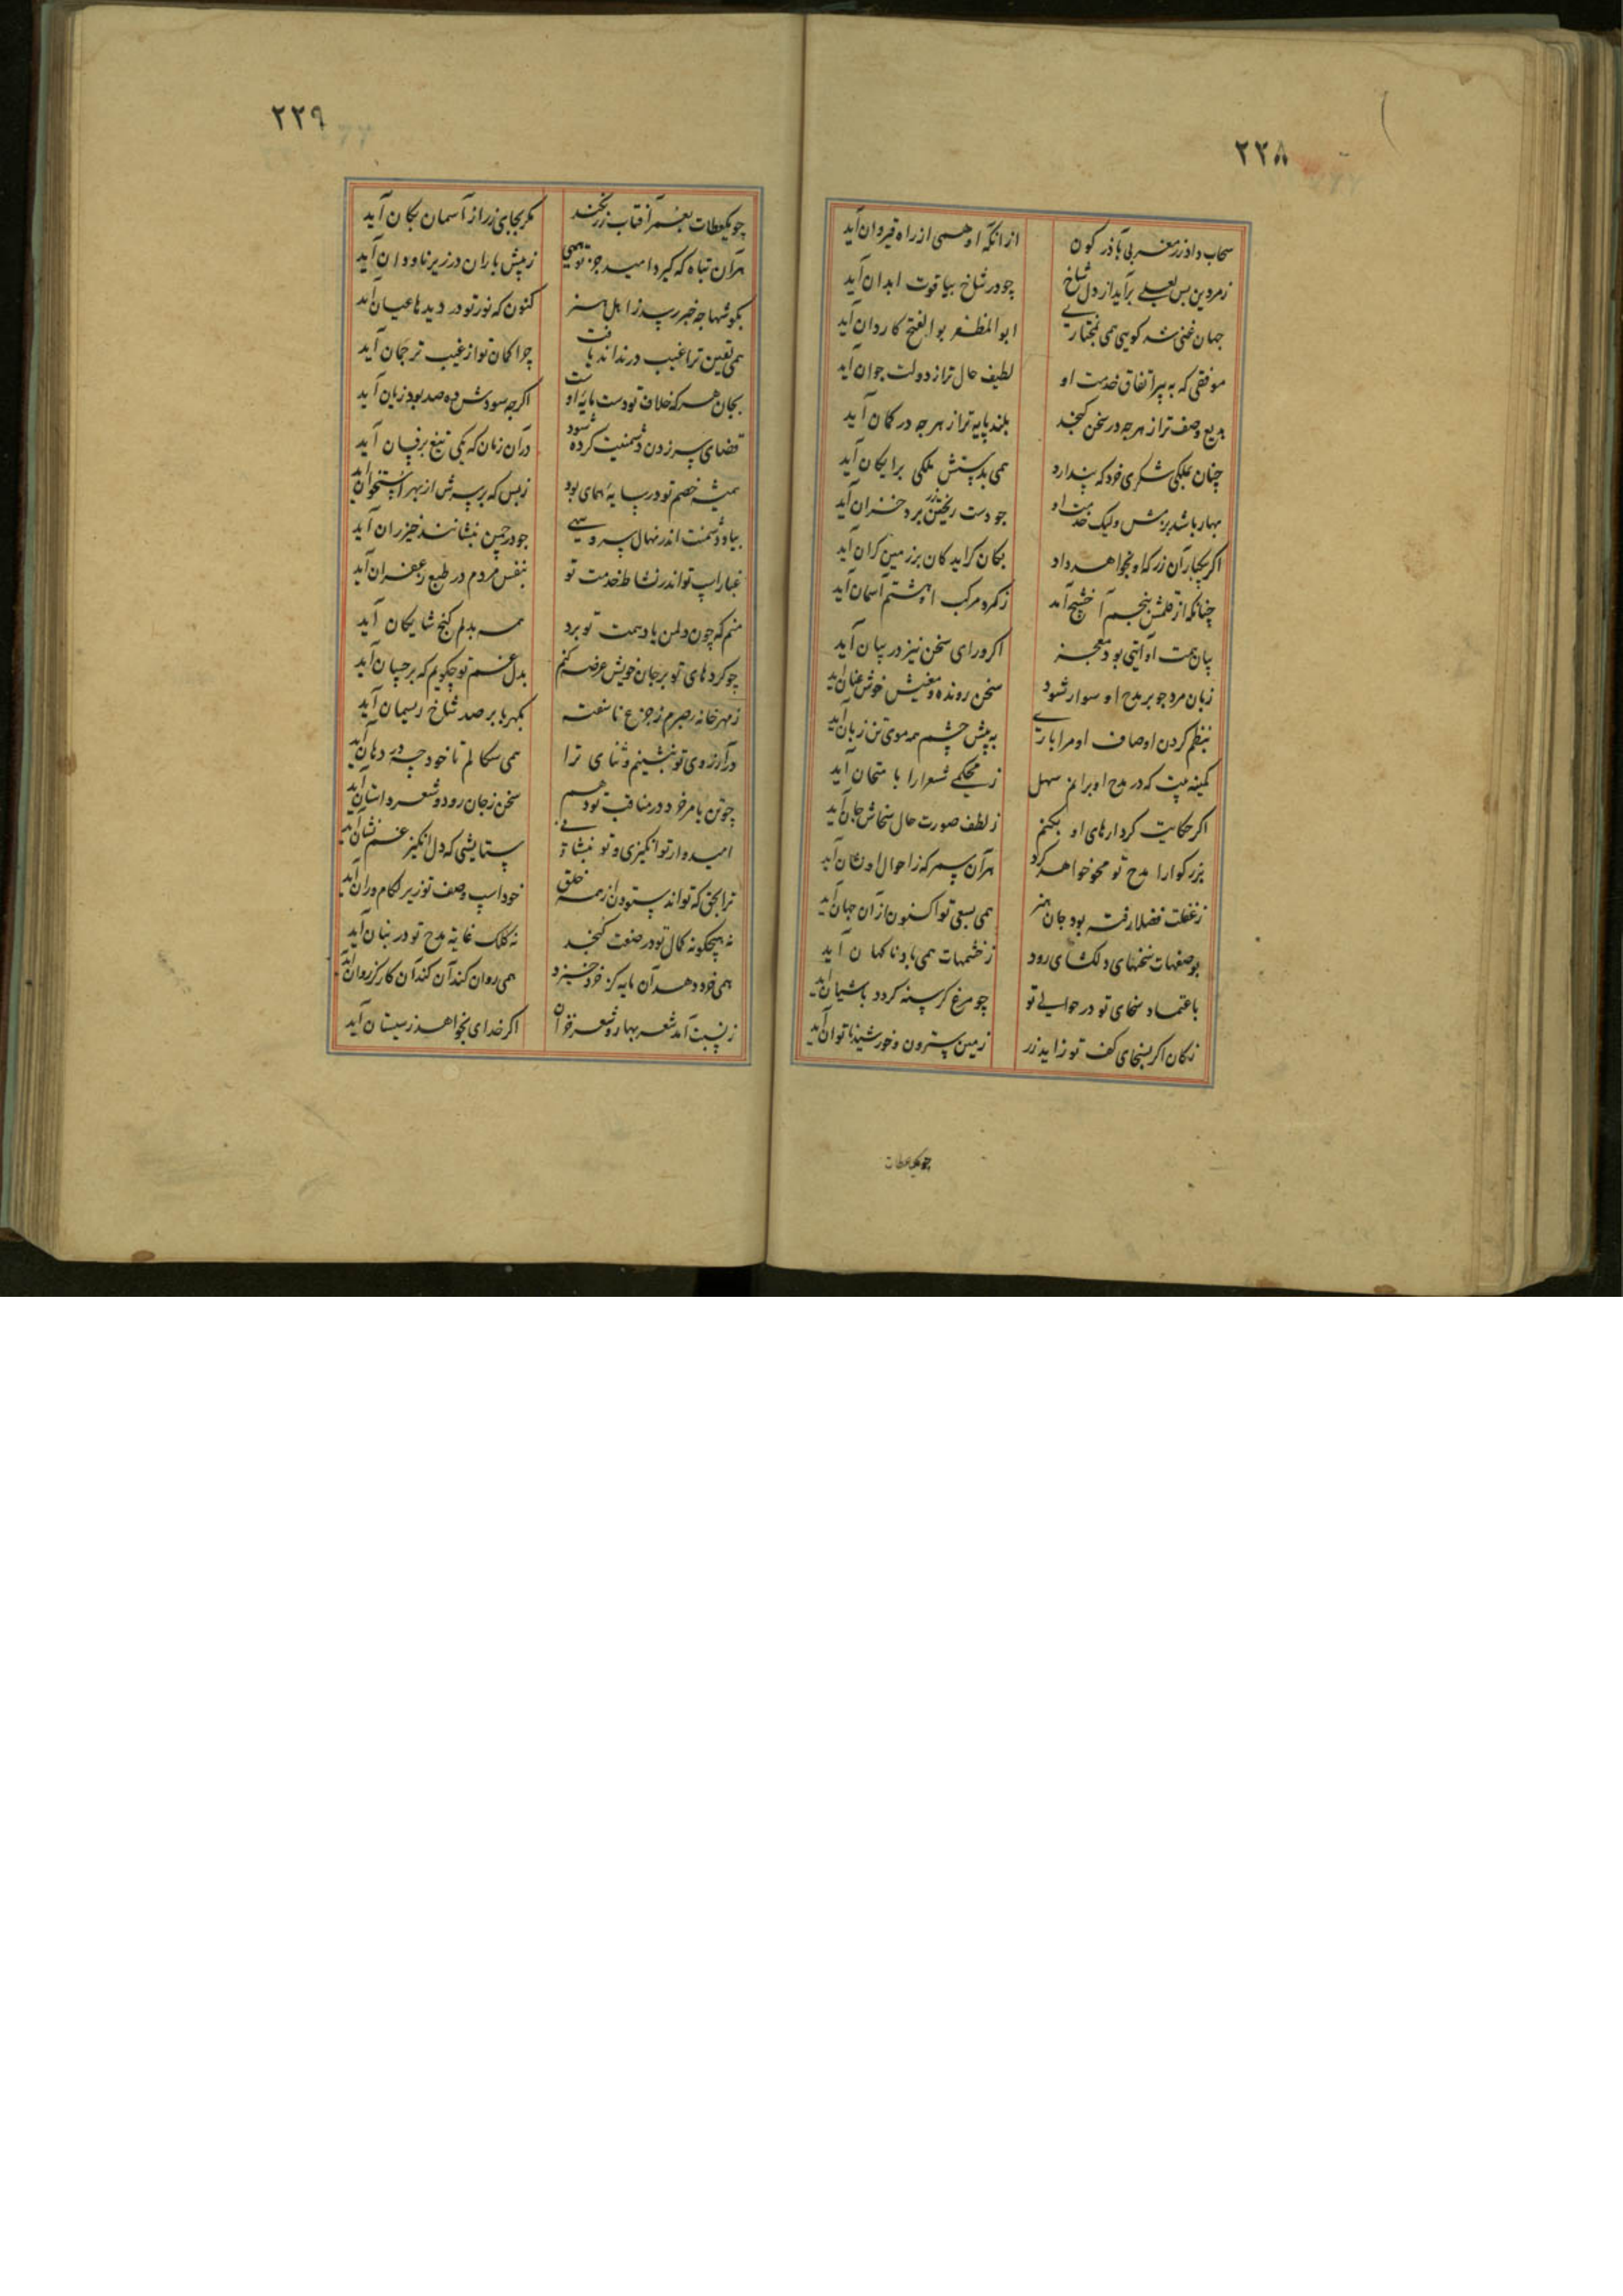 ۲۲۸
سحاب داد زر مغربی بآذرکون ازانکه او همی از راه قیروان آید
زمردین بس لعلی برآید از دل شاخ چو در شاخ بیاقوت ابدان آید
جهان غنی شد کویی همی بمختاری ابوالمظفر بوالفتح کاردان آید
موفقی که به پیر اتفاق خدمت او لطیف حال تر از دولت جوان آید
بدیع وصف تر از هرچه در سخن کنجد بلند پایه تر از هرچه در کمان آید
چنان بملکی شکری خرد که پندارد همی بدستش ملکی برایکان آید
بهار باشد بزمش ولیک خدمت او جو دست ریختن زر برد خزان آید
اکر بیکبار آن زر که او بخواهد داد بکان کراید کان بر زمین کران آید
چنانکه از قلمش پنجم آخشیج آمد زکمر مرکب او هشتم آسمان آید
بیان همت او آیتی بود معجز اکر ورای سخن نیز در بیان آید
زبان مرد جو بر مدح او سوار شود سخن رونده و معنیش خوش عنان آید
بنظم کردن اوصاف او مرا باری به پیش چشم همه موی تن زبان آید
کمینه بیت که در مدح او برانم سهل ز محکمی شعرا را بامتحان آید
اکر حکایت کردارهای او بکنم ز لطف صورت حال سخاش جان آید
بزرکوارا مدح تو محو خواهد کرد هر آن سمر که ز احوال او نشان آید
ز غفلت فضلا رفته بود جان هنر همی بسعی تو اکنون ازان جهان آید
بوصفهات سخنهای دلکشای رود ز خشمهات همی باد ناکهان آید
باعتماد سخای تو در حوالی تو چو مرغ کرسنه کردد باشیان آید
زکان اکر بسخای کف تو زاید زر زمین سترون و خورشید ناتوان آید
چو یکعطات
۲۲۹
چو یکعطات بعمر آفتاب زر نکند مکر بجای زر از آسمان بکان آید
هر آن تباه که کیرد امید جز تو همی ز پیش باران در زیر ناودان آید
بکوشها جه خبر رسید ز اهل هنر کنون که نور تو در دیدها عیان آید
همی یقین ترا غیب در نداند یافت چرا کمان تو از غیب ترجمان آید
بجان هرکه خلاف تو دست مایهٔ اوست اکرچه سودش ده صد بود زیان آید
قضای سر زدن دشمنیت کرده شود دران زمان که یکی تیغ بر فسان آید
همیشه خصم تو در سایهٔ همای بود ز بس که بر سرش از بهر استخوان آید
بیاد دشمنت اندر نهال سرو سهی جو در چمن بنشانند خیزران آید
غبار اسپ تو اندر نشاط خدمت تو بنفس مردم در طبع زعفران آید
منم که چون دل من یاد همت تو برد همه بدلم کنج شایکان آید
چو کردهای تو بر جان خویش عرضه کنم بدل غم تو چکویم که بر چسان آید
ز مهر خانه صبرم ز جزع ناسفته بکهربا بر صد شاخ ریسمان آید
در آرزوی تو بنشینم و ثنای ترا همی سکالم تا خود چه در دهان آید
چو تن بامر خرد در مناقب تو دهم سخن ز جان رود و شعر داستان آید
امیدوار تو انکیزی و تو بنشانی ستایشی که دل انکیز غم نشان آید
ترا بحق که تواند ستودن از همه خلق خود اسپ وصف تو زیر کدام ران آید
نه هیچکونه کمال تو در صنعت کنجد نه کلک غایة مدح تو در بنان آید
همی خرد دهد آن مایه کز خرد خیزد همی روان کند آن کند آن کار کز روان آید
ز نسبت آمد شعر بهار و شعر خزان اکر خدای بخواهد زمستان آید